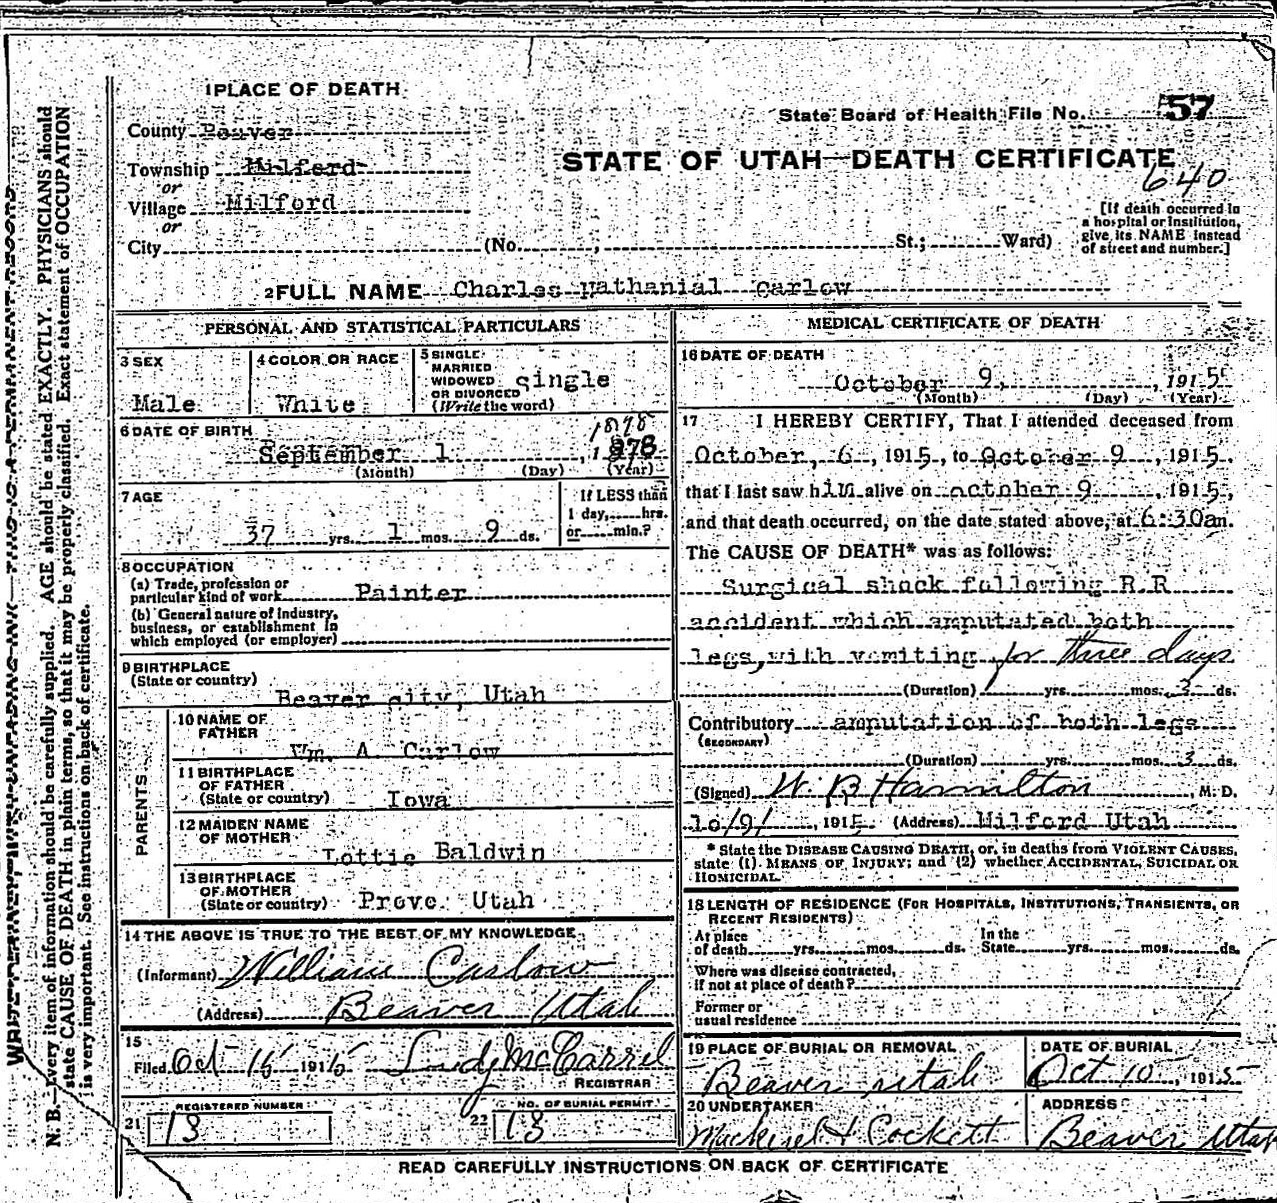 1 PLACE OF DEATH
County Beaver
State Board of Health File No. 57
Township Milford
or
STATE OF UTAH—DEATH CERTIFICATE
640
Village Milford
or
City (No. , St.; Ward)
[If death occurred in
a hospital or institution,
give its NAME instead
of street and number.]
2 FULL NAME Charles Nathanial Carlow
PERSONAL AND STATISTICAL PARTICULARS
3 SEX
Male
4 COLOR OR RACE
White
5 SINGLE
MARRIED
WIDOWED
OR DIVORCED
(Write the word)
single
6 DATE OF BIRTH
1878
September 1 , 1878
(Month) (Day) (Year)
7 AGE
37 yrs. 1 mos. 9 ds.
If LESS than
1 day, hrs.
or min.?
8 OCCUPATION
(a) Trade, profession or
particular kind of work Painter
(b) General nature of industry,
business, or establishment in
which employed (or employer)
9 BIRTHPLACE
(State or country)
Beaver city, Utah
PARENTS
10 NAME OF
FATHER
Wm. A. Carlow
11 BIRTHPLACE
OF FATHER
(State or country) Iowa
12 MAIDEN NAME
OF MOTHER
Lottie Baldwin
13 BIRTHPLACE
OF MOTHER
(State or country) Provo Utah
14 THE ABOVE IS TRUE TO THE BEST OF MY KNOWLEDGE
(Informant) William Carlow
(Address) Beaver Utah
15
Filed Oct 15 1915
REGISTRAR
REGISTERED NUMBER
21 13
NO. OF BURIAL PERMIT
22 13
MEDICAL CERTIFICATE OF DEATH
16 DATE OF DEATH
October 9, , 1915
(Month) (Day) (Year)
17 I HEREBY CERTIFY, That I attended deceased from
October, 6 , 1915, to October 9 , 1915,
that I last saw him alive on october 9 , 1915,
and that death occurred, on the date stated above, at 6:30am.
The CAUSE OF DEATH* was as follows:
Surgical shock following R.R
accident which amputated both
legs, with vomiting for three days
(Duration) yrs. mos. 3 ds.
Contributory amputation of both legs
(SECONDARY)
(Duration) yrs. mos. 3 ds.
(Signed) W. B Hamilton , M. D.
10/9/ , 1915 (Address) Milford Utah
* State the DISEASE CAUSING DEATH, or, in deaths from VIOLENT CAUSES,
state (1) MEANS OF INJURY; and (2) whether ACCIDENTAL, SUICIDAL OR
HOMICIDAL.
18 LENGTH OF RESIDENCE (FOR HOSPITALS, INSTITUTIONS, TRANSIENTS, OR
RECENT RESIDENTS)
At place
of death yrs. mos. ds.
In the
State yrs. mos. ds.
Where was disease contracted,
if not at place of death?
Former or
usual residence
19 PLACE OF BURIAL OR REMOVAL
Beaver utah
DATE OF BURIAL
Oct 10 , 1915
20 UNDERTAKER
Cockett
ADDRESS
Beaver Utah
READ CAREFULLY INSTRUCTIONS ON BACK OF CERTIFICATE
WRITE PLAINLY, WITH UNFADING INK—THIS IS A PERMANENT RECORD
N. B.—Every item of information should be carefully supplied. AGE should be stated EXACTLY. PHYSICIANS should
state CAUSE OF DEATH in plain terms, so that it may be properly classified. Exact statement of OCCUPATION
is very important. See instructions on back of certificate.